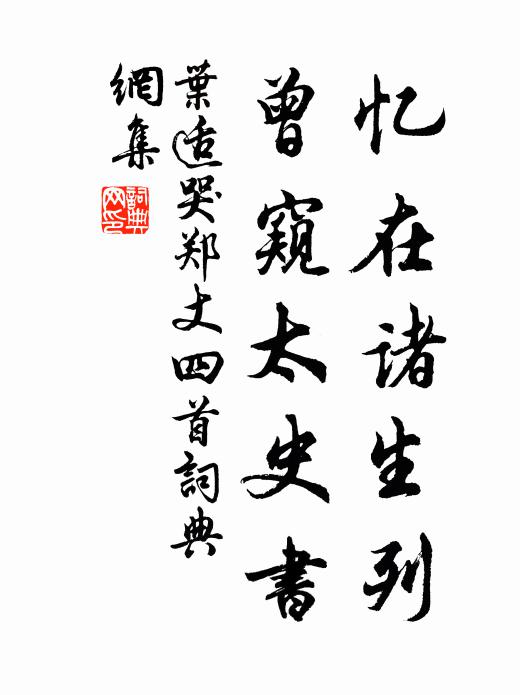 忆在诸生列
曾窥太史書
葉适哭郑丈四首詞典
網集
詞典
网印